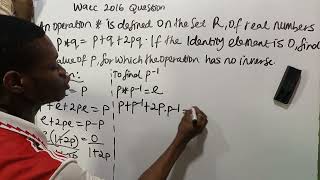 Wacc 2016 Question
An operation * is defined on the Set R, of real numbers
P*q = P+q+2pq. If the Identity element is 0, find
value of P, for which the operation has no inverse.
To find p-1
P*p-1 = e
P+p-1+2p.p-1 =
+e+2pe = P
e+2pe = p-p
e(1+2p) = 0
1+2p